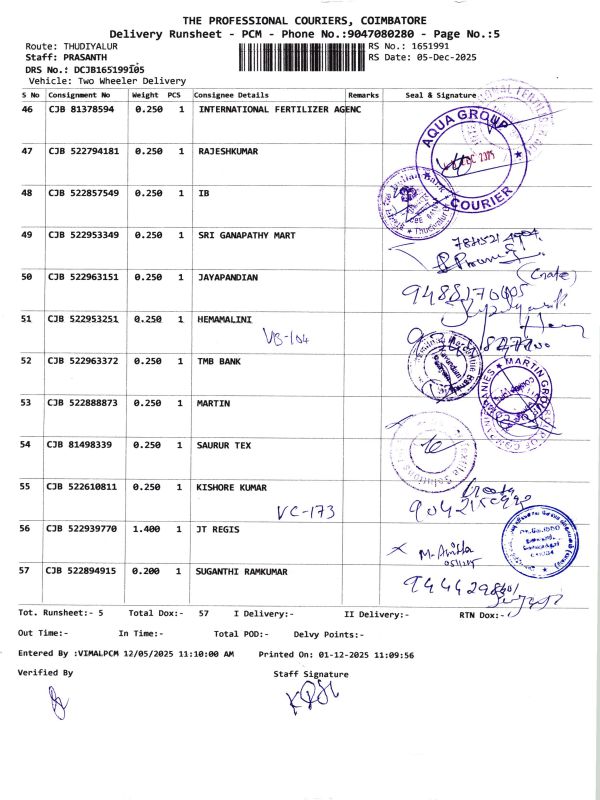 THE PROFESSIONAL COURIERS, COIMBATORE
Delivery Runsheet - PCM - Phone No.:9047080280 - Page No.:5
Route: THUDIYALUR RS No.: 1651991
Staff: PRASANTH RS Date: 05-Dec-2025
DRS No.: DCJB165199105
Vehicle: Two Wheeler Delivery
S No Consignment No Weight PCS Consignee Details Remarks Seal & Signature
46 CJB 81378594 0.250 1 INTERNATIONAL FERTILIZER AGENC
AQUA GROUP
COURIER
47 CJB 522794181 0.250 1 RAJESHKUMAR
48 CJB 522857549 0.250 1 IB
49 CJB 522953349 0.250 1 SRI GANAPATHY MART
50 CJB 522963151 0.250 1 JAYAPANDIAN
51 CJB 522953251 0.250 1 HEMAMALINI
VB-104
52 CJB 522963372 0.250 1 TMB BANK
53 CJB 522888873 0.250 1 MARTIN
MARTIN GROUP OF COMPANIES
54 CJB 81498339 0.250 1 SAURUR TEX
55 CJB 522610811 0.250 1 KISHORE KUMAR
VC-173
56 CJB 522939770 1.400 1 JT REGIS
M. Anitha
57 CJB 522894915 0.200 1 SUGANTHI RAMKUMAR
Tot. Runsheet:- 5 Total Dox:- 57 I Delivery:- II Delivery:- RTN Dox:-
Out Time:- In Time:- Total POD:- Delvy Points:-
Entered By :VIMALPCM 12/05/2025 11:10:00 AM Printed On: 01-12-2025 11:09:56
Verified By Staff Signature